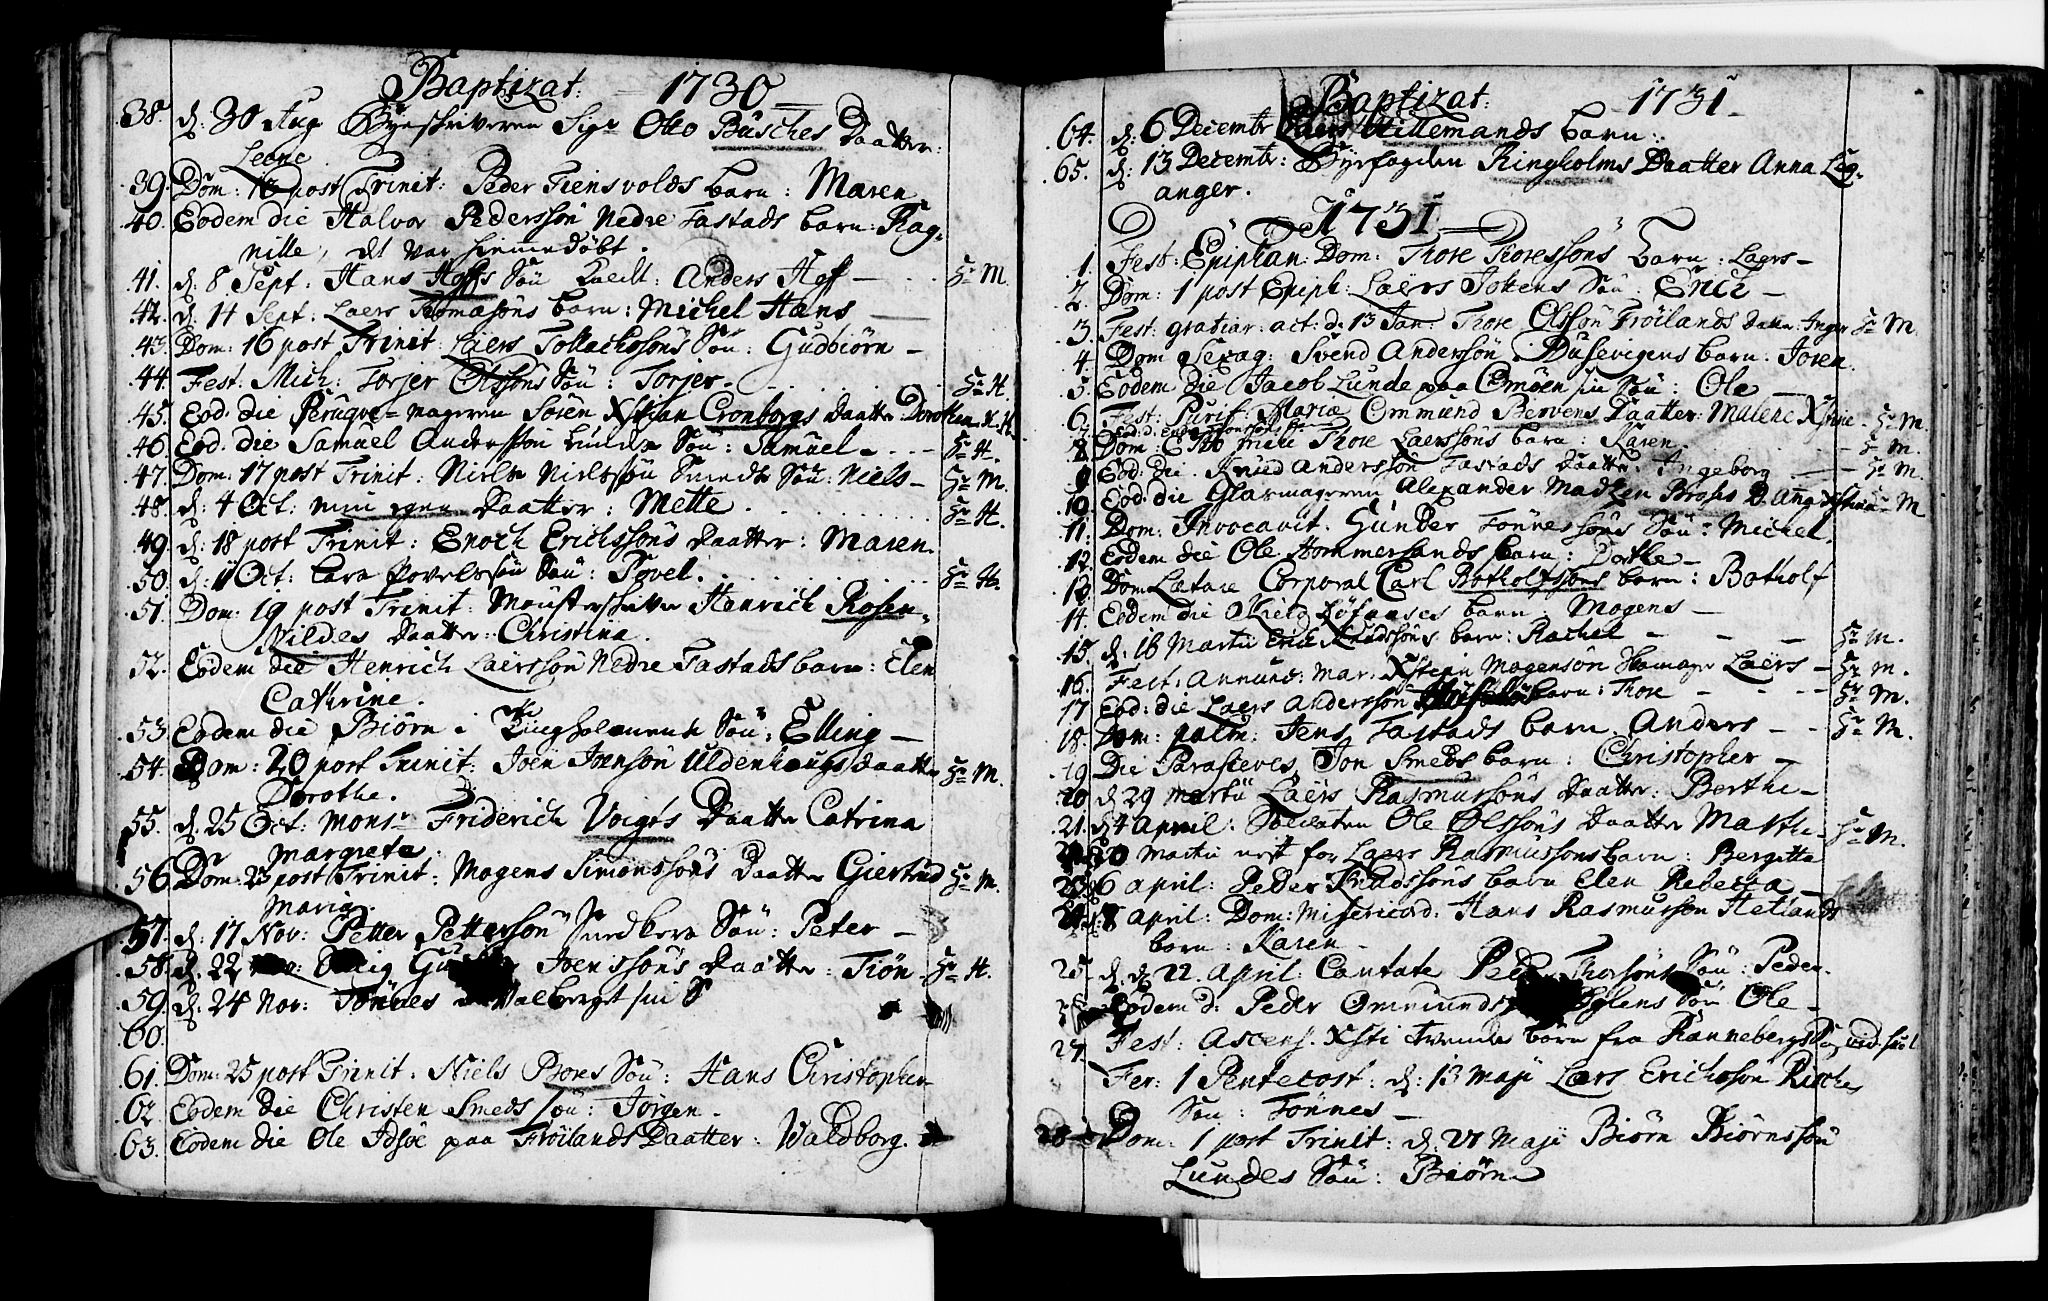 Baptizat: 1730
38. d: 30 Aug Byeskriveren Sigr Otto Büsches Daatter:
Leene
39. Dom: 13 post Trinit: Peder Tiensvolds barn: Maren
40. Eodem die Halvor Pederssön Nedre Tastads barn: Rag-
nille, det var hiemedöbt.
41. d. 8 Sept: Hans Hoffs Sön kaldt: Anders Hoff — Hr M.
42. d. 14 Sept: Laers Tomasöns barn: Michel Hans —
43. Dom: 16 post Trinit: Laers Tollachssöns Sön: Gudbiörn —
44. Fest: Mich: Torjer Olssöns Sön: Torjer. Hr H.
45. Eod. die Peruqve-mageren Sören Xstian Cronborgs Daatter Dorothea Hr H.
46. Eod. die Samuel Anderssön Sön: Samuel Hr H.
47. Dom: 17 post Trinit: Niels Nielssön Smeds Sön: Niels — Hr M.
48. d: 4 Oct: min egen Daatter: Mette. Hr H.
49. d: 18 post Trinit: Enoch Erichssöns Daatter: Maren.
50. d: 11 Oct: Lars Povelssön Sön: Povel. Hr H.
51. Dom: 19 post Trinit: Mönsterskriver Henrich Rosen-
vildes Daatter: Christina.
52. Eodem die Henrich Laerssön Nedre Tastads barn: Elen
Cathrine.
53. Eodem die Biörn i Sön: Elling —
54. Dom: 20 post Trinit: Joen Joensön Uldenhougs Daatter Hr M.
Dorothe.
55. d. 25 Oct: Monsr Friderich Voigts Daatter Catrina
Margreta.
56. Dom: 23 post Trinit: Mogens Simonssöns Daatter Giertrud Hr M.
Maria.
57. d: 17 Nov: Petter Petterssön Snedkers Sön: Peter —
58. d. 22 Joenssöns Daatter: Siön Hr H.
59. d: 24 Nov: Tönnes Valberget sin S
60.
61. Dom: 25 post Trinit. Niels Bores Sön: Hans Christopher
62. Eodem die Christen Smeds Sön: Jörgen.
63. Eodem die Ole Idsöe paa Fröilands Daatter: Valdborg.
Baptizat: 1731
64. d: 6 Decembr Laers Villemands barn:
65. d: 13 Decembr: Byefogden Ringholms Daatter Anna Leg-
anger.
1731
1. Fest: Epiphan: Dom: Thore Thoressöns barn: Laers —
2. Dom: 1 post Epiph: Laers Jokens Sön: Erich —
3. Fest: gratiar: act: d. 13 Jan: Thore Olssön Fröilands Datter Inger Hr M.
4. Dom Sexag: Svend Anderssön Busevigens barn: Joren.
5. Eodem die Jacob Lunde paa Omöen sin Sön: Ole —
6. Fest: Purif: Mariæ Ommund Bervens Daatter: Malene Xstine Hr M.
8. Dom Esto Thore Laerssöns barn: Karen Hr M.
9. Eod: die. Anderssön Tastads Daatter: Ingeborg — Hr M.
10. Eod: die Glarmageren Alexander Madzen Broses D. Anna Hr M
11. Dom: Invocavit. Gunder Tönnessöns Sön: Michel.
12. Eodem die Ole Hommersands barn: Dorthe —
13. Dom Lætare Corporal Carl Botholfssöns barn: Botholf
14. Eodem die barn: Mogens —
15. d: 16 Martii Erich Knudssöns barn: Rachel — Hr M.
16. Fest: Annunc: Mar. Xsten Mogensön Laers — Hr M.
17 Eod: die Laers Anderssön barn: Thore — Hr M.
18. Dom: palm: Jens Tastads barn Anders — Hr M.
19 Die Parasceves Jon Smeds barn: Christopher —
20 d 29 Martii Laers Rasmussöns Daatter: Berthe —
21. d 4 April: Soldaten Ole Olssöns Daatter Marthe — Hr M.
20 Martii Laers Rasmussöns barn: Bergitta
6 april: Peder Knudssöns barn Elen Rebecca —
8 april: Dom: Misericord. Hans Rasmussön Hetlands
barn: Karen —
25. d. 22 April: Cantate Peder Thorsöns Sön: Peder.
Eodem d: Peder Ommunds Sön Ole —
27. Fest: Ascens. Xsti tvende börn fra Ranneberg
Fer: 1 Pentecost: d: 13 Maji Lars Erichssön Risches
Sön: Tönnes —
28 Dom: 1 post Trinit: d: 27 Maji Biörn Biörnssön
Lundes Sön: Biörn